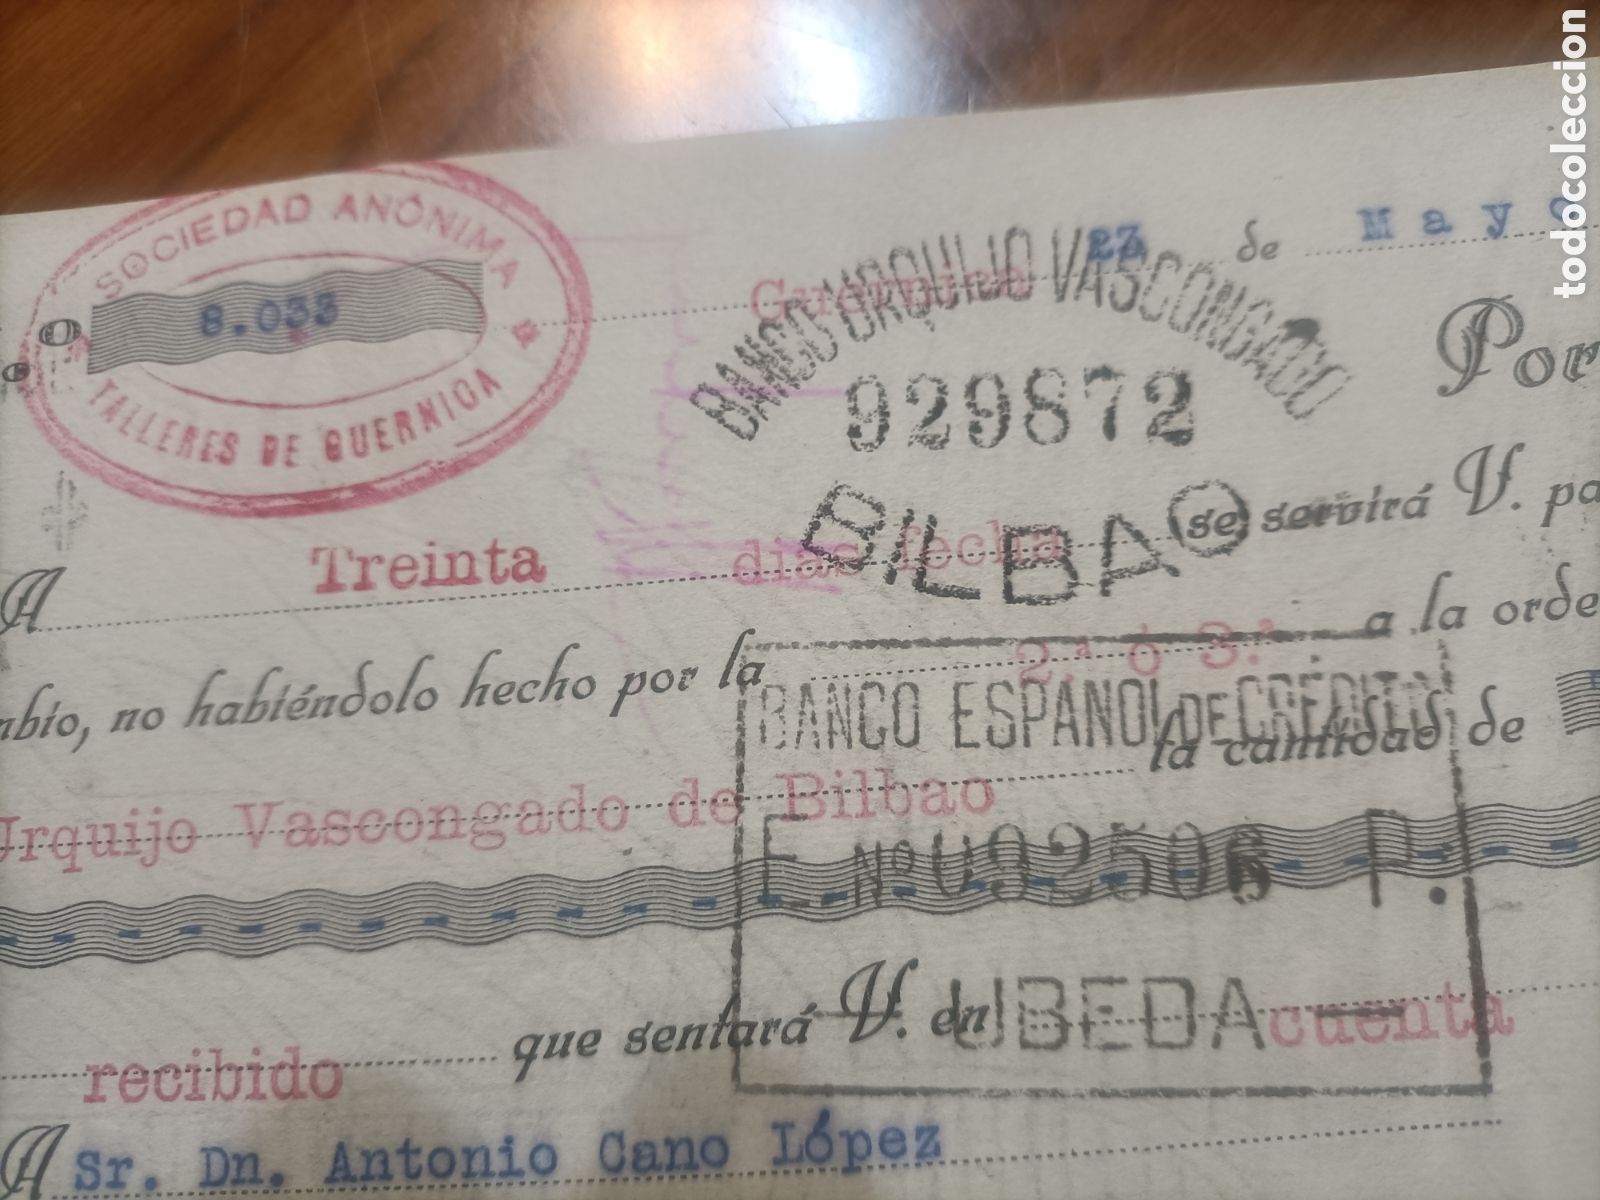 SOCIEDAD ANÓNIMA
8.033
TALLERES DE GUERNICA
Guernica 23 de Mayo
BANCO URQUIJO VASCONGADO
929872
BILBAO
Por
A Treinta días fecha se servirá V. pa
mbio, no habiéndolo hecho por la 2.ª ó 3.ª a la orde
BANCO ESPAÑOL DE CRÉDITO
Urquijo Vascongado de Bilbao la cantidad de
E Nº 092506 P.
UBEDA
recibido que sentará V. en cuenta
A Sr. Dn. Antonio Cano López
todocoleccion